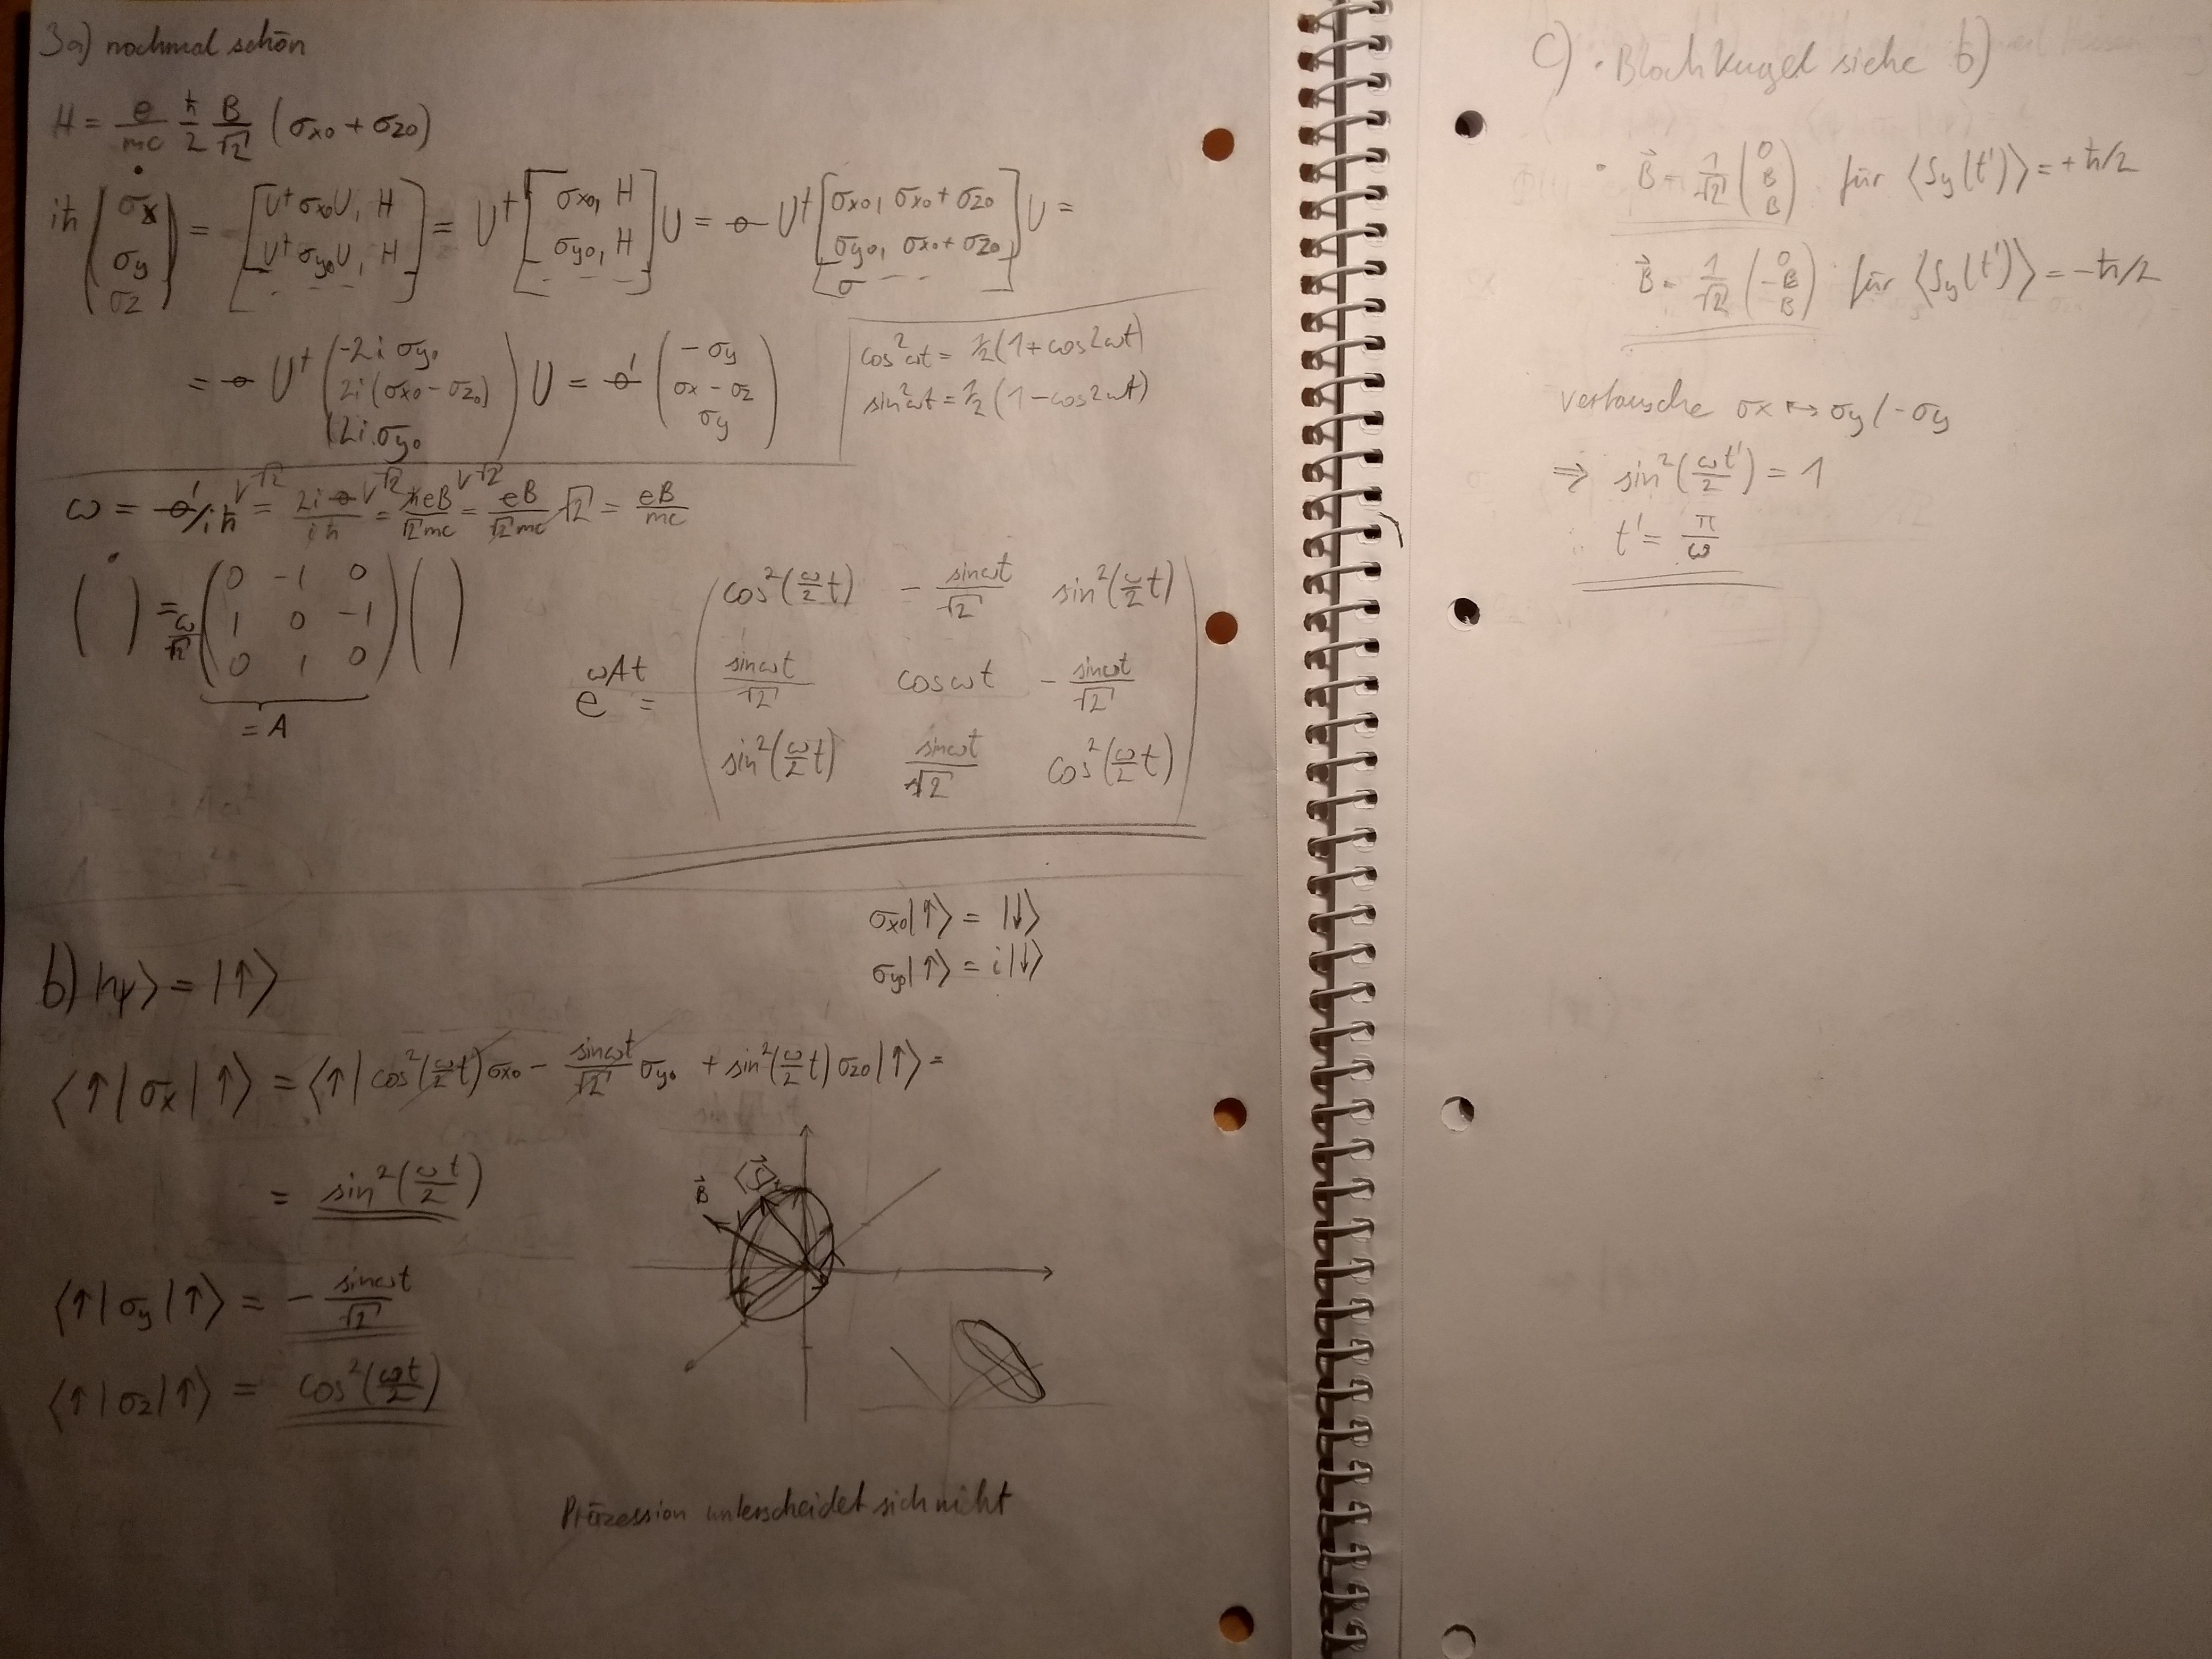 3a) nochmal schön
H = e/mc ħ/2 B/√2 (σx0 + σz0)
iħ (σ̇x σy σz) = [U†σx0U, H U†σy0U, H - - -] = U†[σx0, H σy0, H - - -]U = U†[σx0, σx0+σz0 σy0, σx0+σz0 σ - - -]U =
= U†(-2iσy0 2i(σx0-σz0) 2iσy0)U = (-σy σx-σz σy)
cos²ωt = 1/2(1+cos2ωt)
sin²ωt = 1/2(1-cos2ωt)
ω = /iħ √2 = 2i √2/iħ = ħeB√2/√2mc = eB/√2mc √2 = eB/mc
( )˙ = ω/√2 (0 -1 0 1 0 -1 0 1 0) ( )
= A
e^ωAt = (cos²(ω/2 t) - sinωt/√2 sin²(ω/2 t)
sinωt/√2 cosωt - sinωt/√2
sin²(ω/2 t) sinωt/√2 cos²(ω/2 t))
σx0|↑⟩ = |↓⟩
σy0|↑⟩ = i|↓⟩
b) |ψ⟩ = |↑⟩
⟨↑|σx|↑⟩ = ⟨↑|cos²(ω/2 t)σx0 - sinωt/√2 σy0 + sin²(ω/2 t)σz0|↑⟩ =
= sin²(ωt/2)
⟨↑|σy|↑⟩ = - sinωt/√2
⟨↑|σz|↑⟩ = cos²(ωt/2)
B⃗
⟨S⃗⟩t
Präzession unterscheidet sich nicht
c) · Blochkugel siehe b)
· B⃗ = 1/√2 (0 B B) für ⟨Sy(t')⟩ = +ħ/2
B⃗ = 1/√2 (0 -B B) für ⟨Sy(t')⟩ = -ħ/2
vertausche σx ↔ σy/-σy
⇒ sin²(ωt'/2) = 1
t' = π/ω